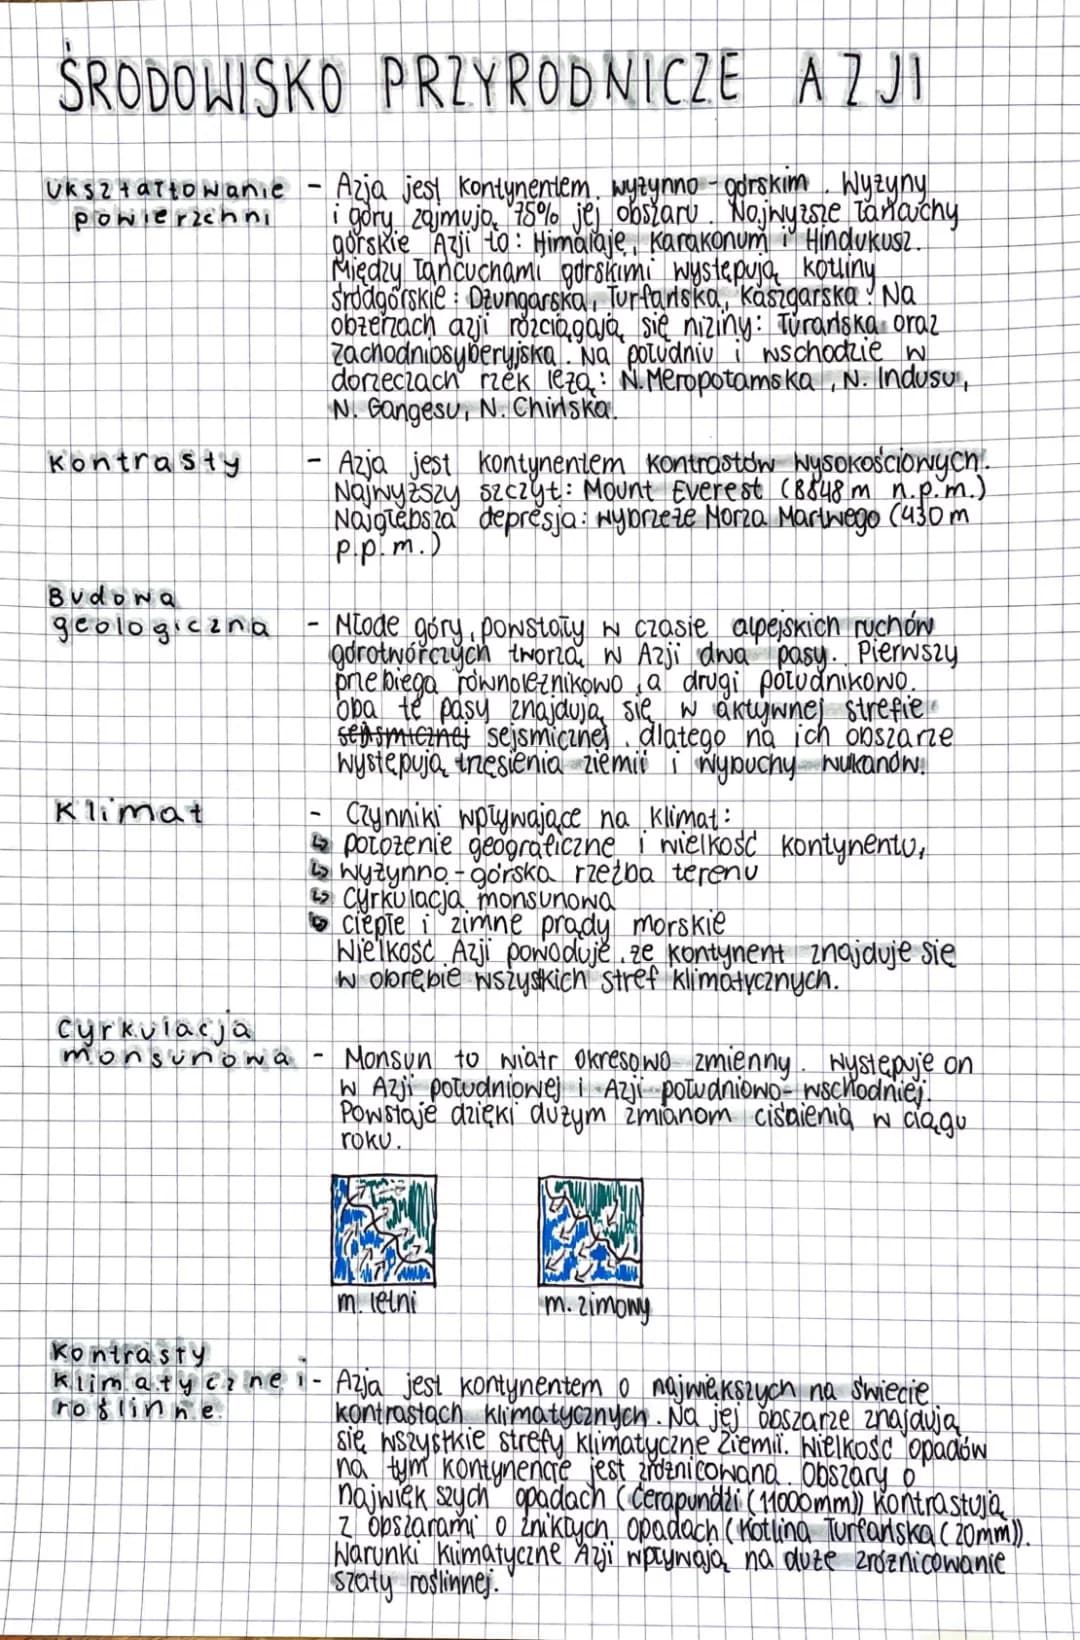 ŚRODOWISKO PRZYRODNICZE AZJI
Ukształtowanie powierzchni - Azja jest kontynentem wyżynno-górskim. Wyżyny
i góry zajmują 75% jej obszaru. Najwyższe łańcuchy
górskie Azji to: Himalaje, Karakorum i Hindukusz.
Między łańcuchami górskimi występują kotliny
śródgórskie: Dżungarska, Turfańska, Kaszgarska. Na
obżerzach azji rozciągają się niziny: Turańska oraz
zachodniosyberyjska. Na południu i wschodzie w
dorzeczach rzek leżą: N.Meropotamska, N. Indusu,
N. Gangesu, N. Chińska.
Kontrasty - Azja jest kontynentem kontrastów wysokościowych.
Najwyższy szczyt: Mount Everest (8848 m n.p.m.)
Najgłębsza depresja: wybrzeże Morza Martwego (430 m
p.p.m.)
Budowa
geologiczna - Młode góry, powstały w czasie alpejskich ruchów
górotwórczych tworzą w Azji dwa pasy. Pierwszy
przebiega równoleżnikowo, a drugi południkowo.
Oba te pasy znajdują się w aktywnej strefie
sejsmicznej, dlatego na ich obszarze
występują trzęsienia ziemii i wybuchy wulkanów.
Klimat - Czynniki wpływające na klimat:
↳ położenie geograficzne i wielkość kontynentu,
↳ wyżynno-górska rzeźba terenu
↳ cyrkulacja monsunowa
↳ ciepłe i zimne prądy morskie
Wielkość Azji powoduje, że kontynent znajduje się
w obrębie wszyskich stref klimatycznych.
Cyrkulacja
monsunowa - Monsun to wiatr okresowo zmienny. Występuje on
w Azji południowej i Azji południowo-wschodniej.
Powstaje dzięki dużym zmianom ciśnienia w ciągu
roku.
m. letni m. zimowy
Kontrasty
klimatyczne i - Azja jest kontynentem o największych na świecie
roślinne. kontrastach klimatycznych. Na jej obszarze znajdują
się wszystkie strefy klimatyczne Ziemii. Wielkość opadów
na tym kontynencie jest zróżnicowana. Obszary o
największych opadach (Czerapundżi (11000mm)) kontrastują
z obszarami o znikłych opadach (Kotlina Turfańska (20mm)).
Warunki klimatyczne Azji wpływają na duże zróżnicowanie
szaty roślinnej.